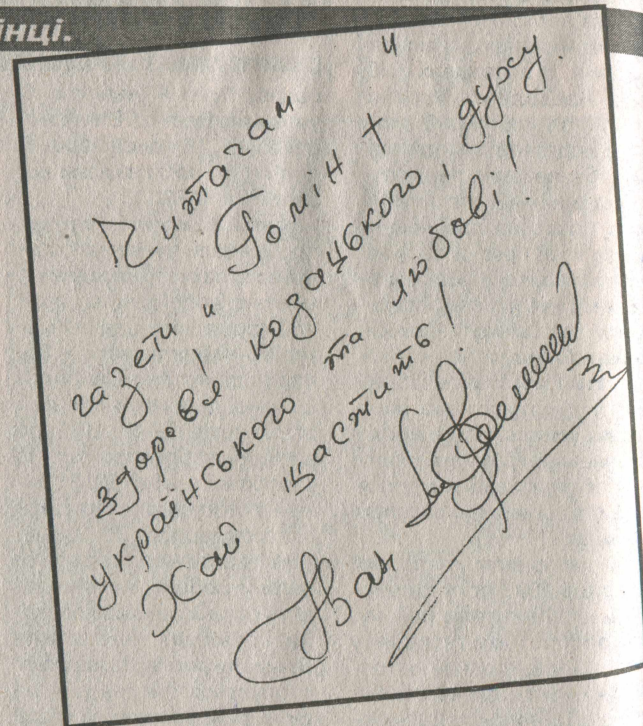 інці.
Читачам
газети "Гомін +"
здоровя! козацького, духу.
українського та любові!
Хай щастить!
Іван